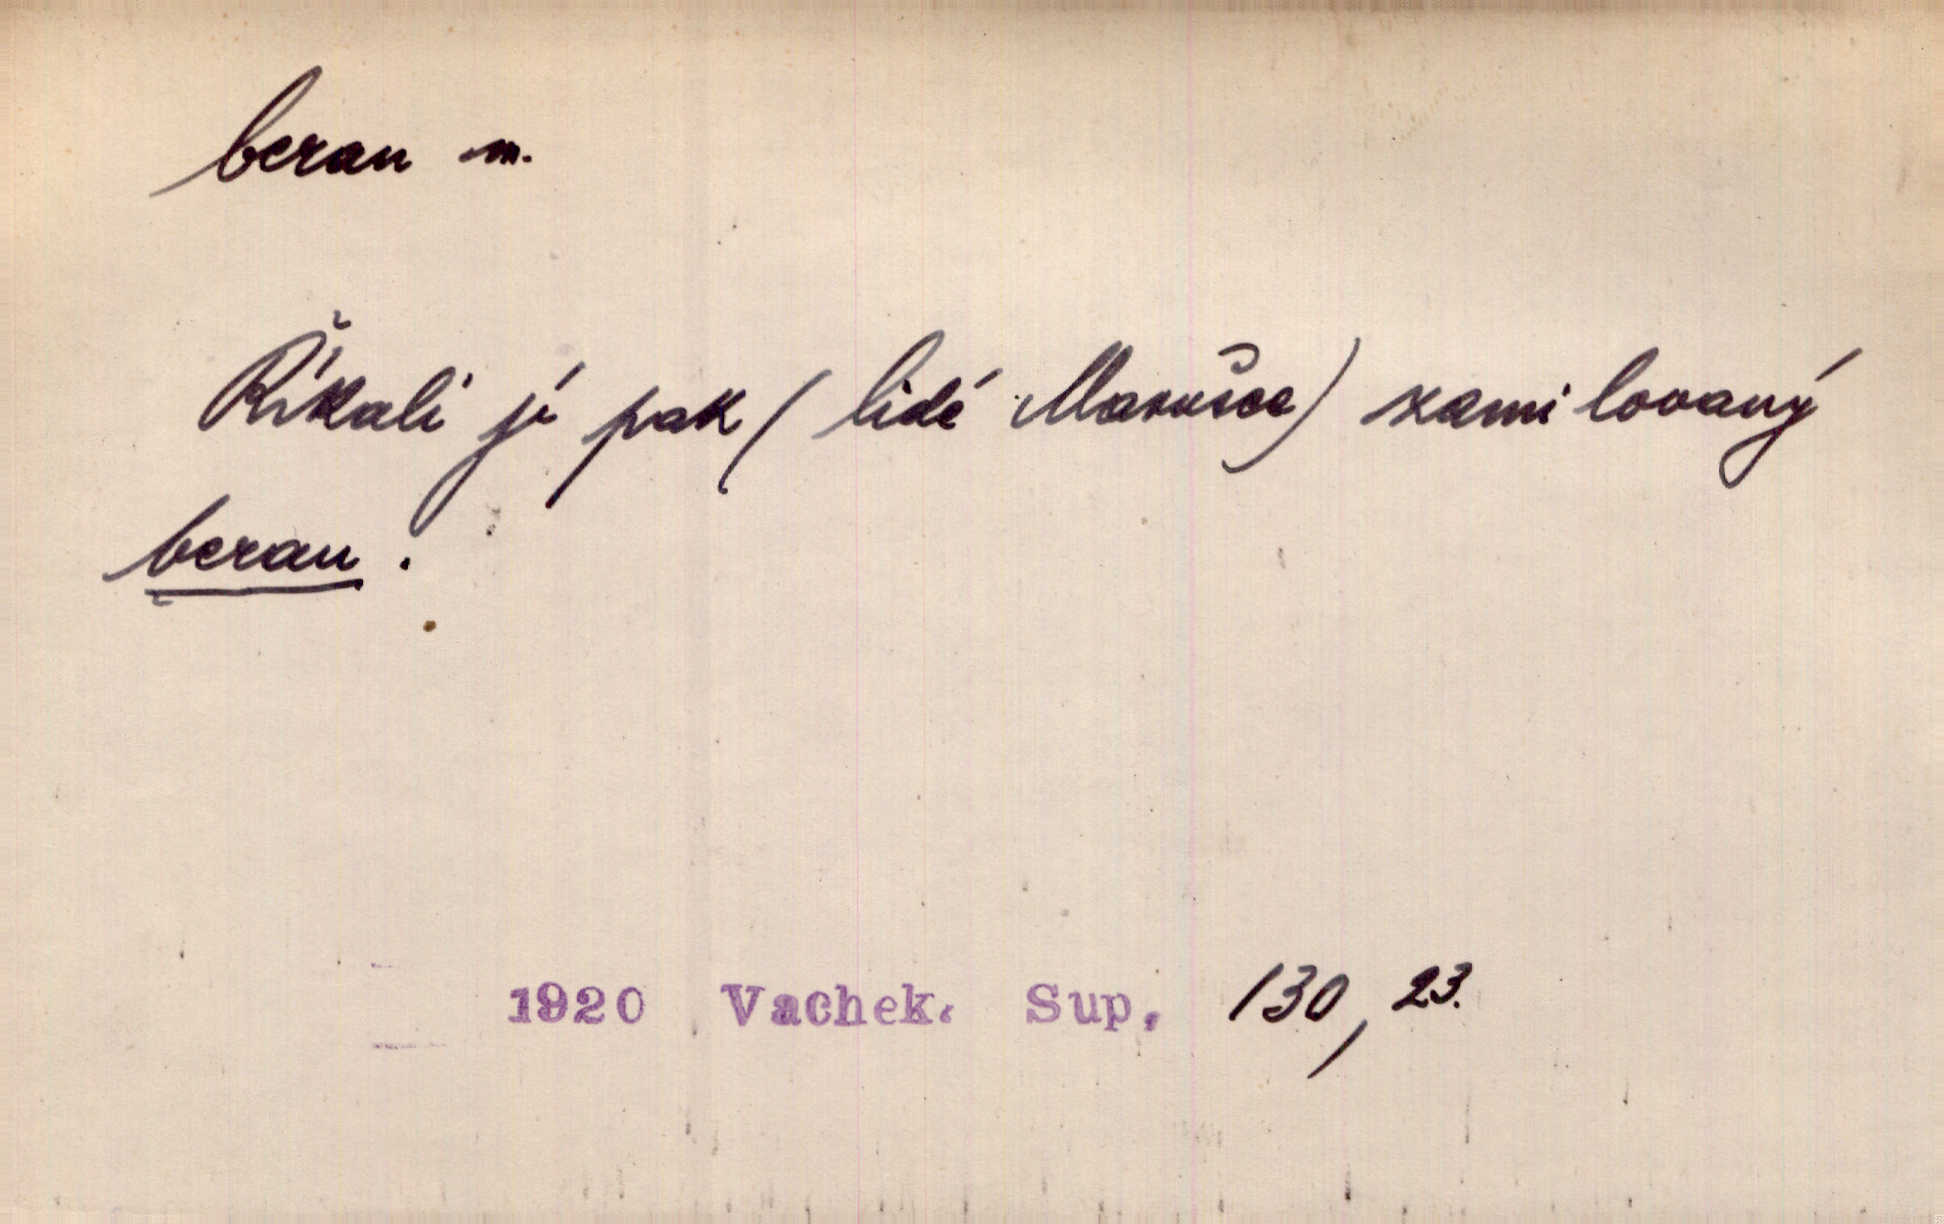 beran m.
Říkali jí pak (lidé Marušce) zamilovaný
beran.
1920 Vachek. Sup. 130, 23.